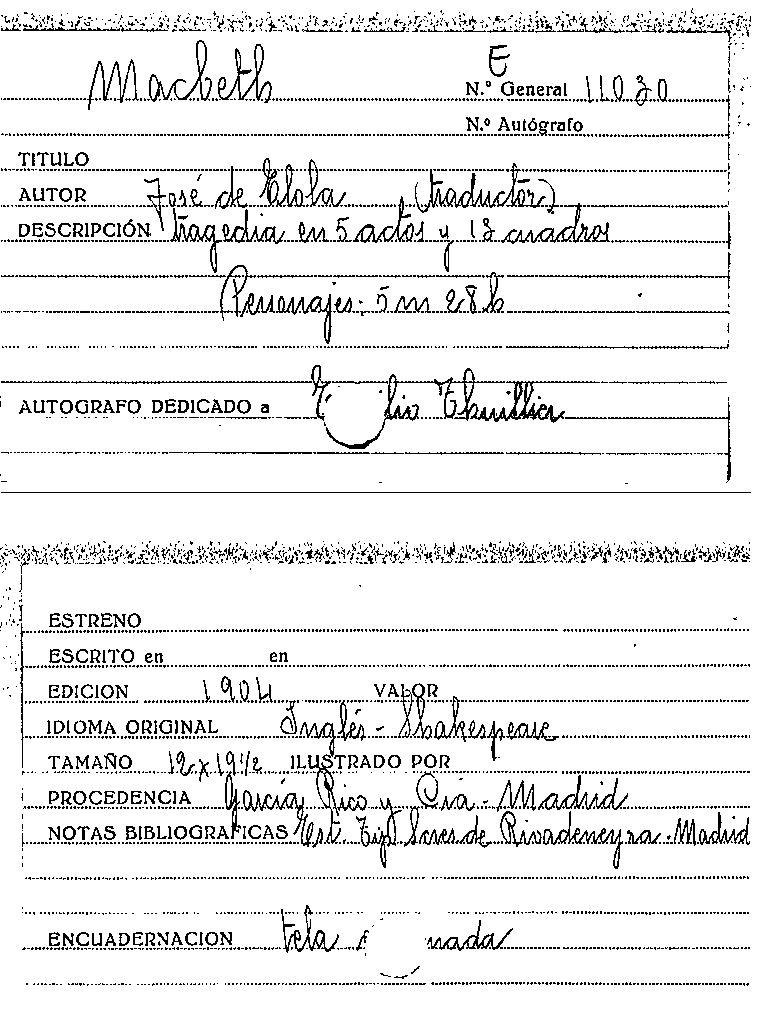 E
Macbeth N.º General 11030
N.º Autógrafo
TITULO
AUTOR José de Elola (traductor)
DESCRIPCIÓN tragedia en 5 actos y 13 cuadros
Personajes: 5 m 28 h
AUTOGRAFO DEDICADO a E lio Thuillier
ESTRENO
ESCRITO en en
EDICION 1904 VALOR
IDIOMA ORIGINAL Inglés - Shakespeare
TAMAÑO 12 x 19 1/2 ILUSTRADO POR
PROCEDENCIA García Rico y Cia - Madrid
NOTAS BIBLIOGRAFICAS Est. Tip. Sucres de Rivadeneyra - Madrid
ENCUADERNACION tela nada